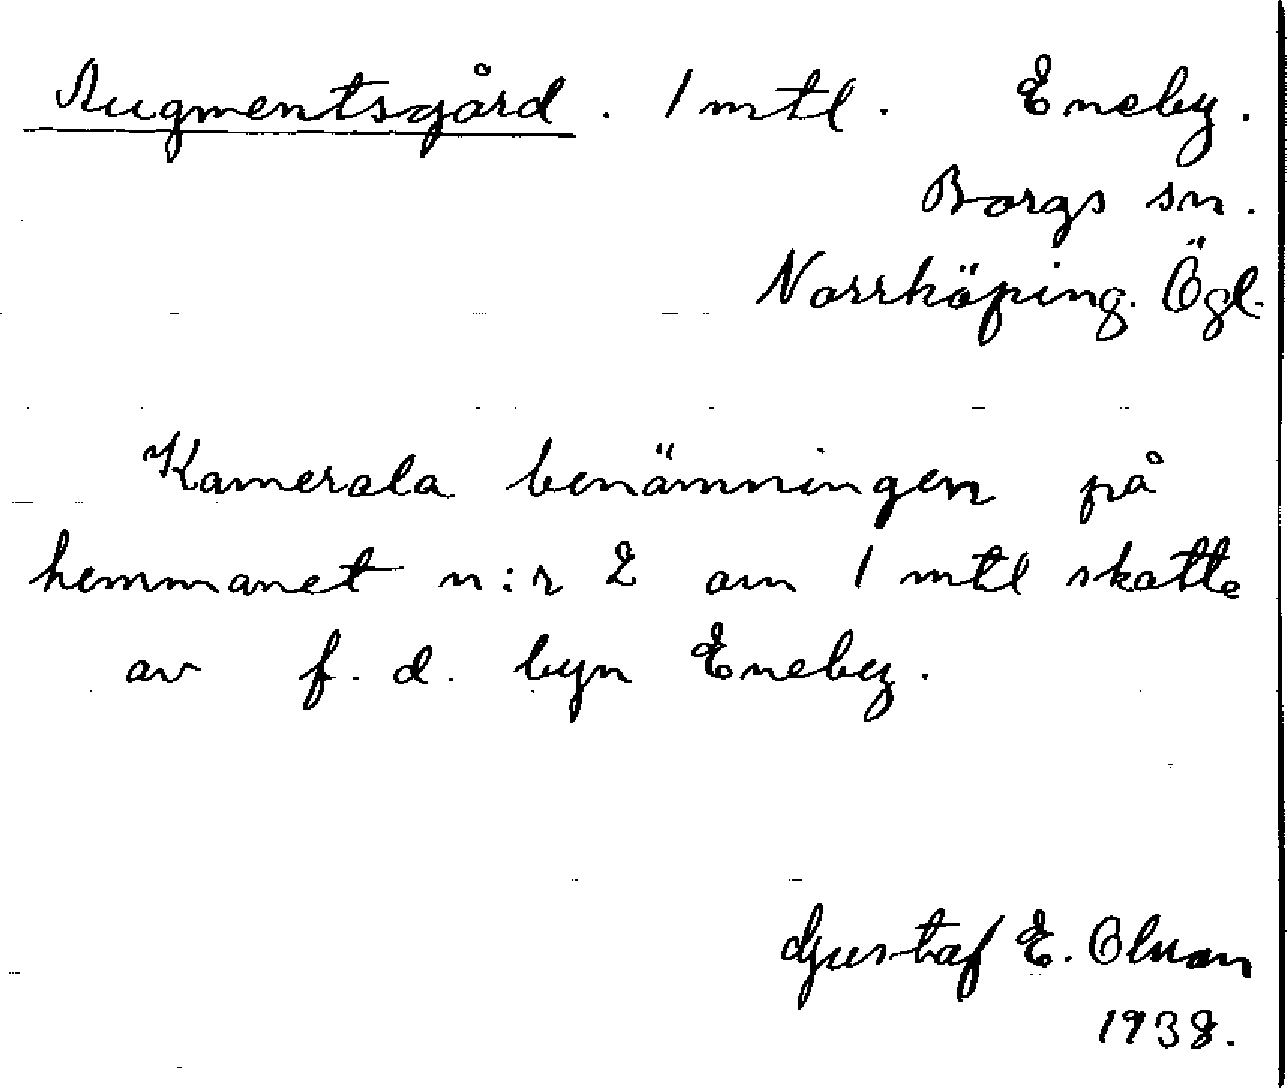 Augmentsgård. 1 mtl. Eneby.
Borgs sn.
Norrköping. Ögl.
Kamerala benämningen på
hemmanet n:r 2 om 1 mtl skatte
av f. d. byn Eneby.
Gustaf E. Olsson
1938.